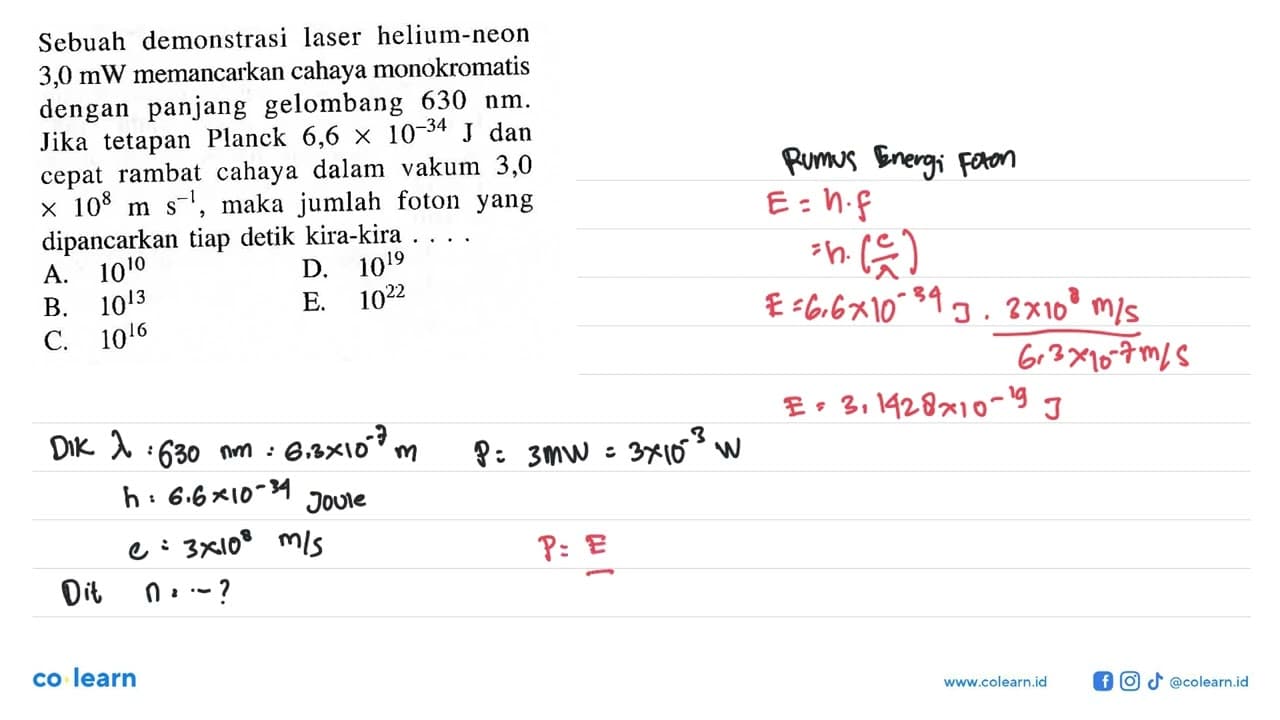 Sebuah demonstrasi laser helium-neon
3,0 mW memancarkan cahaya monokromatis
dengan panjang gelombang 630 nm.
Jika tetapan Planck 6,6 × 10⁻³⁴ J dan
cepat rambat cahaya dalam vakum 3,0
× 10⁸ m s⁻¹, maka jumlah foton yang
dipancarkan tiap detik kira-kira . . . .
A. 10¹⁰ D. 10¹⁹
B. 10¹³ E. 10²²
C. 10¹⁶
Rumus Energi Foton
E = h.f
= h. (c/λ)
E = 6,6×10⁻³⁴ J . 3×10⁸ m/s
6,3×10⁻⁷ m/s
E = 3,1428×10⁻¹⁹ J
Dik λ : 630 nm : 6.3×10⁻⁷ m P = 3mW = 3×10⁻³ W
h : 6.6×10⁻³⁴ Joule
c : 3×10⁸ m/s
P = E
Dit n : ... ?
co learn
www.colearn.id
@colearn.id